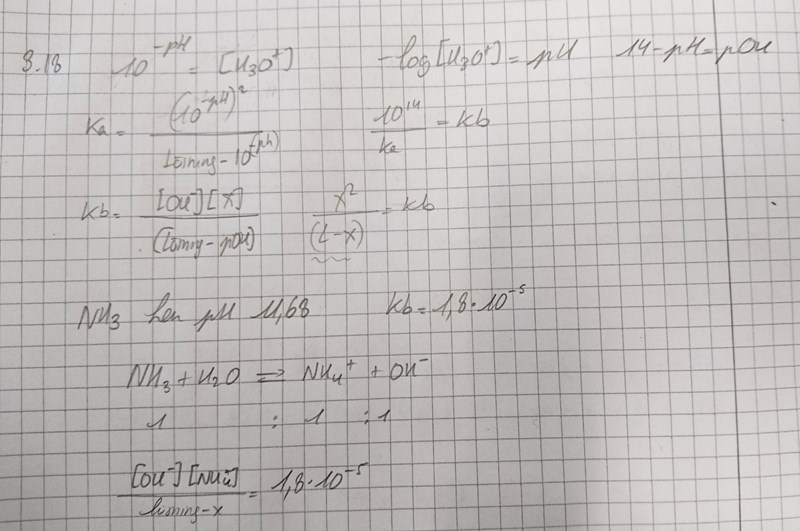 8.18 10^-pH = [H3O+] -log[H3O+] = pH 14-pH=pOH
Ka = (10^-pH)^2 / Losning-10^(-pH) 10^14 / ka = kb
Kb = [OH-][X] / (Losning-pOH) x^2 / (L-x) = kb
NH3 har pH 11,68 kb = 1,8·10^-5
NH3 + H2O ⇌ NH4+ + OH-
1 : 1 : 1
[OH-][NH4] / losning-x = 1,8·10^-5